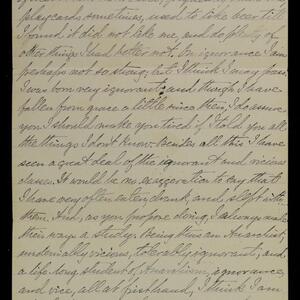 play cards sometimes, used to take beer till
I found it did not take me, and do plenty of
other things I had better not. On ignorance I am
perhaps not so strong, but I think I may pass.
I was born very ignorant; and though I have
fallen from grace a little since then, I do assure
you I should make you tired if I told you all
the things I don't know. Besides all this I have
seen a great deal of the ignorant and vicious
classes. It would be no exaggeration to say that
I have very often eaten, drank, and slept with
them. And, as you propose doing, I always make
their ways a study. Being then an Anarchist,
undeniably vicious, tolerably ignorant, and
a life-long student of Anarchism, ignorance,
and vice, all at first hand, I think I am